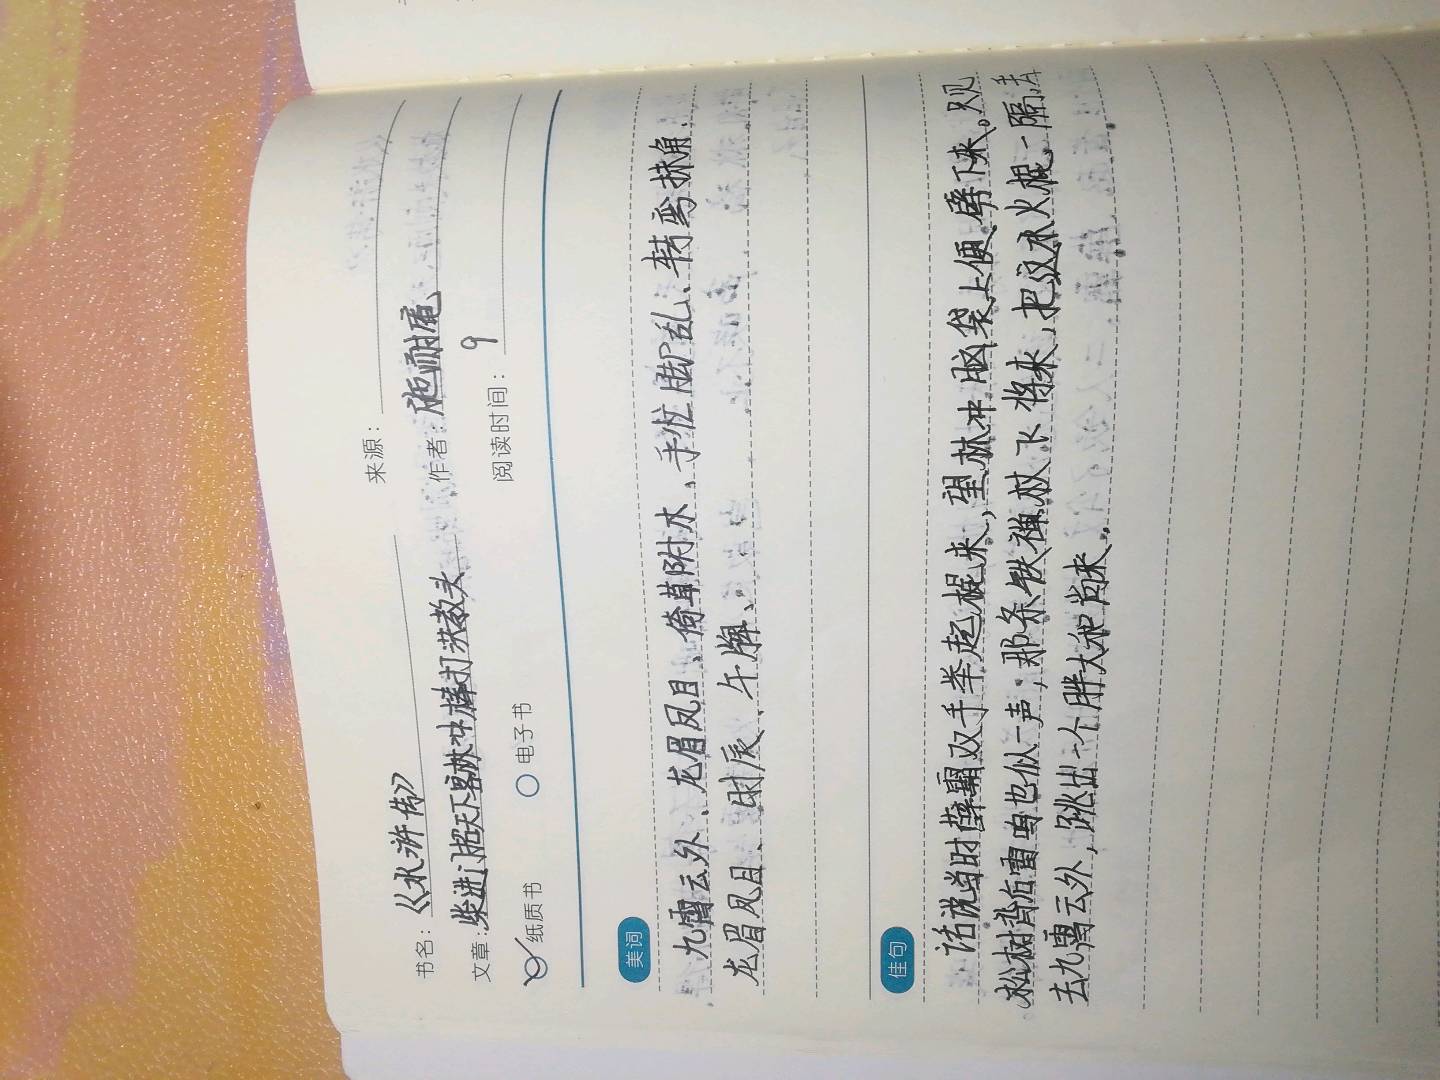 书名：《水浒传》 来源：
文章：柴进门招天下客林冲棒打洪教头 作者：施耐庵
纸质书 电子书 阅读时间：9
美词
九霄云外、龙眉凤目、倚草附木、手忙脚乱、转弯抹角、
龙眉凤目、时辰、午牌、
佳句
话说当时薛霸双手举起棍来，望林冲脑袋上便劈下来。只见
松树背后雷鸣也似一声，那条铁禅杖飞将来，把这水火棍一隔丢
去九霄云外，跳出一个胖大和尚来。